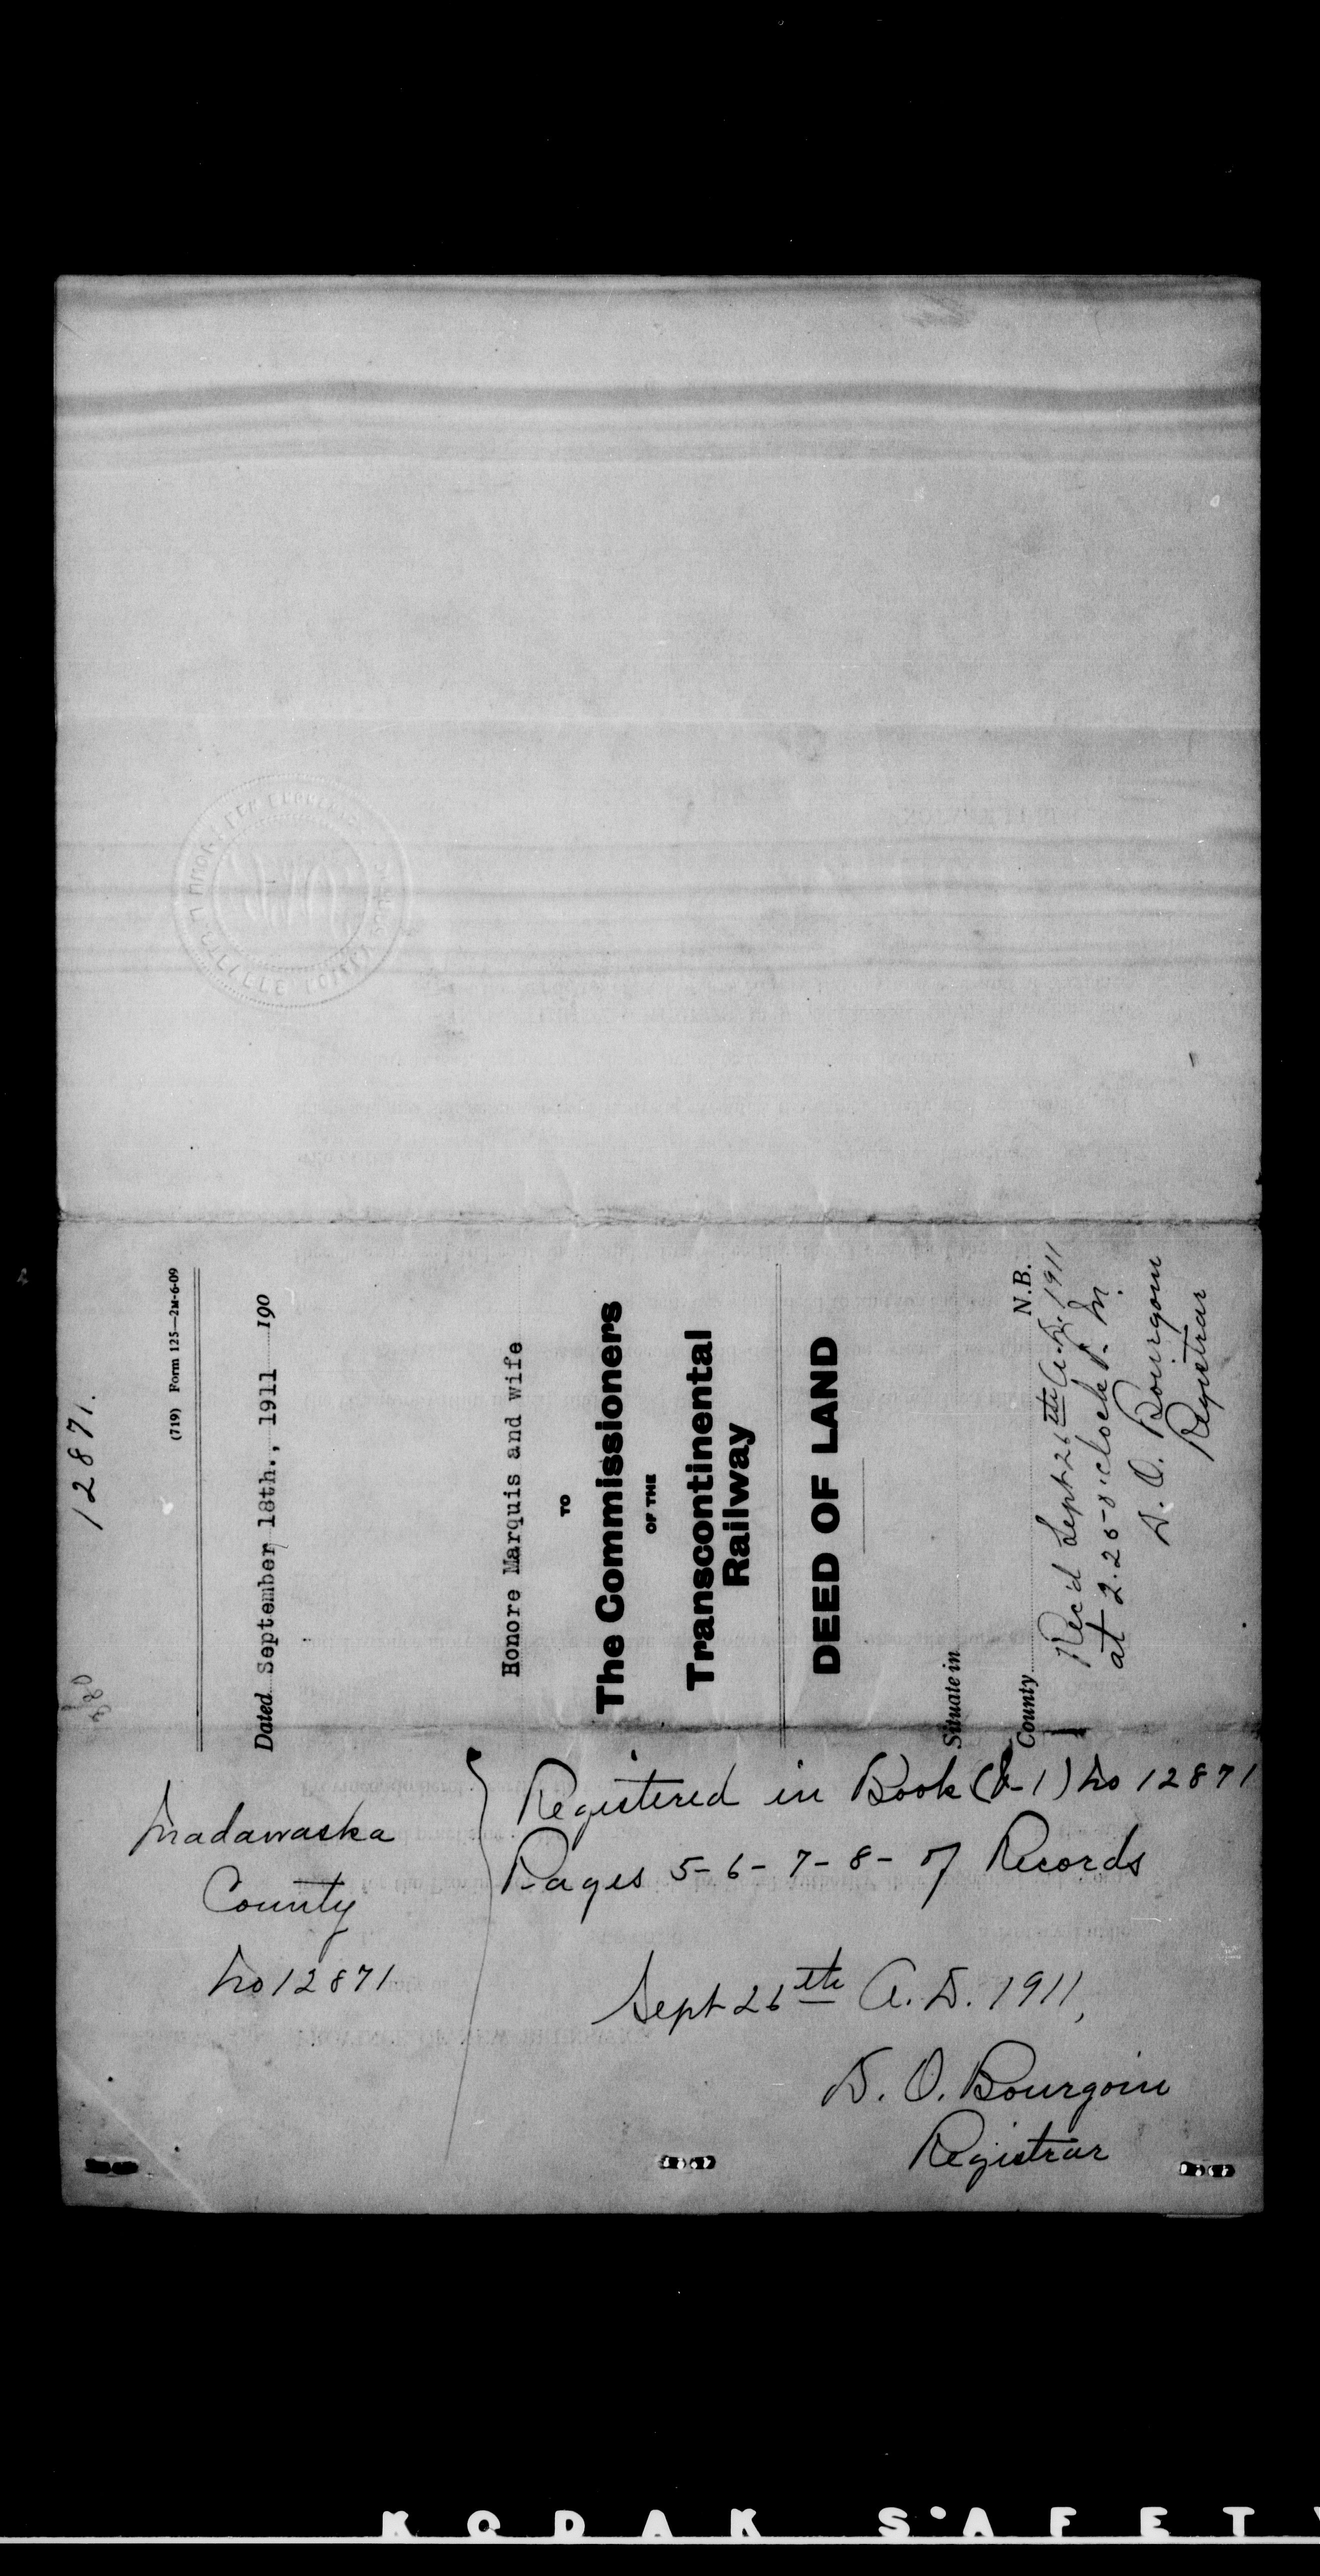 12871.
(719) Form 125—2M-6-09
Dated September 18th., 1911 190
Honore Marquis and wife
TO
The Commissioners
OF THE
Transcontinental
Railway
DEED OF LAND
Situate in
County N.B.
Rec'd Sept 26th A.D. 1911
at 2.25 o'clock P. M.
D. O. Bourgoin
Registrar
Madawaska
County
No 12871
Registered in Book No 12871
Pages 5-6-7-8- of Records
Sept 26th A.D. 1911,
D. O. Bourgoin
Registrar
KODAK SAFETY